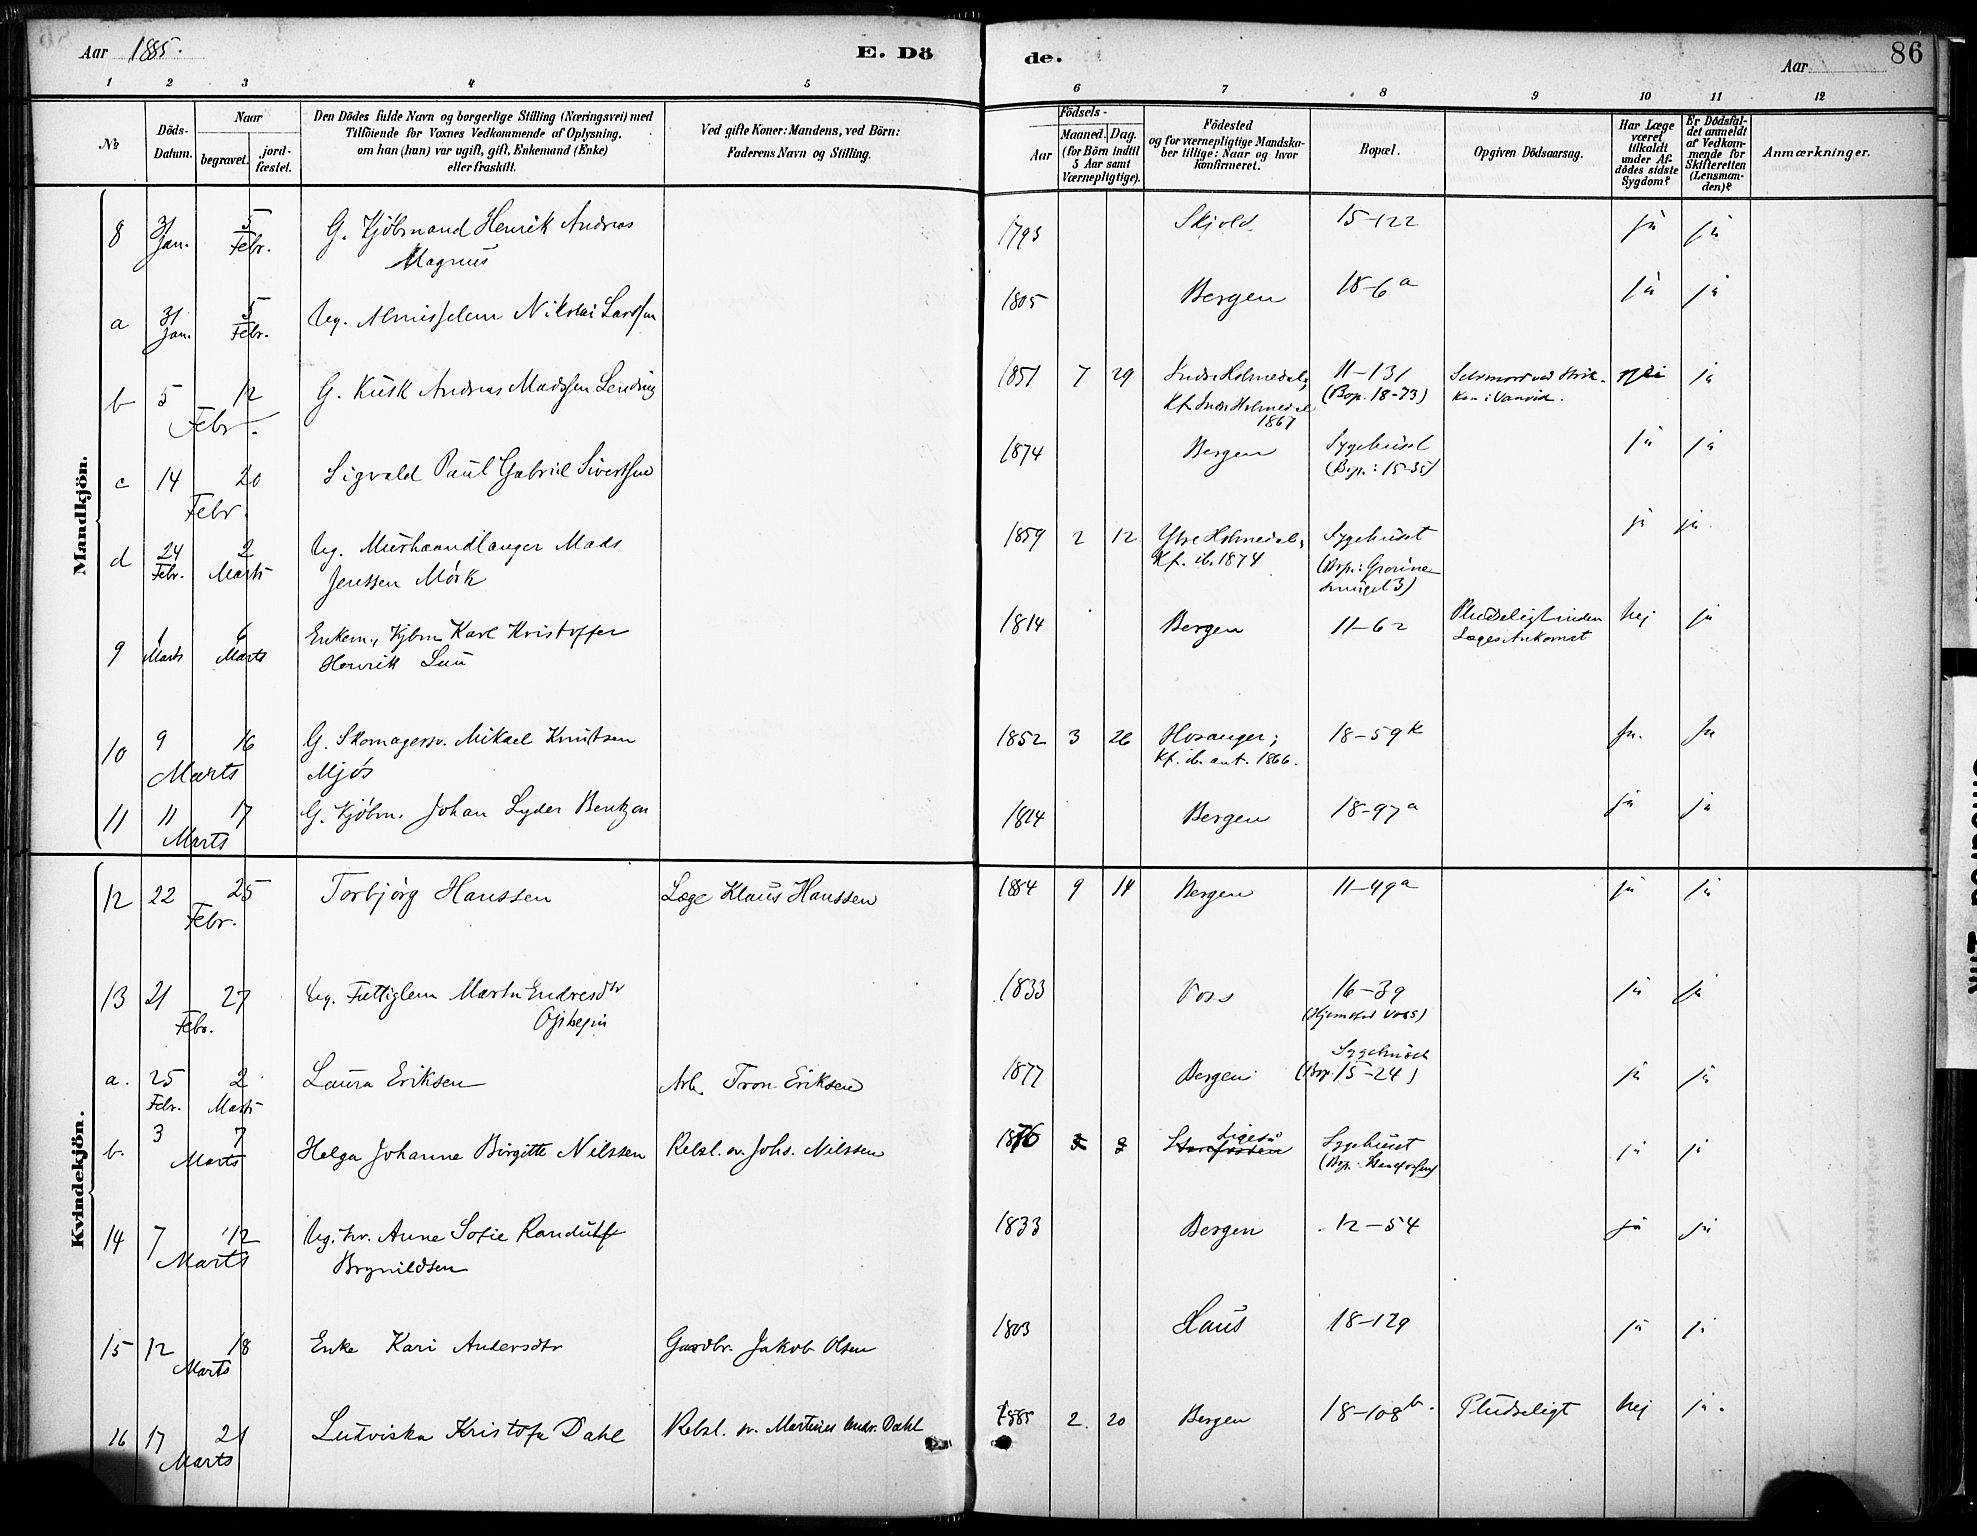 Aar 1885.
E. Dö
de.
Aar
86
1 2 3 4 5 6 7 8 9 10 11 12
No
Döds-
Datum.
Naar
begravet.
jord-
fæstet.
Den Dödes fulde Navn og borgerlige Stilling (Næringsvei) med
Tilföiende for Voxnes Vedkommende af Oplysning,
om han (hun) var ugift, gift, Enkemand (Enke)
eller fraskilt.
Ved gifte Koner: Mandens, ved Börn:
Faderens Navn og Stilling.
Födsels-
Aar
Maaned. Dag.
(for Börn indtil
5 Aar samt
Værnepligtige).
Födested
og for værnepligtige Mandska-
ber tillige: Naar og hvor
konfirmeret.
Bopæl.
Opgiven Dödsaarsag.
Har Læge
været
tilkaldt
under Af-
dödes sidste
Sygdom?
Er Dödsfal-
det anmeldt
af Vedkom-
mende for
Skifteretten
(Lensman-
den)?
Anmærkninger.
Mandkjön.
8 31 Jan. 5 Febr. G. Kjöbmand Henrik Andreas
Magnus
1793 Skjold 15-122 ja ja
a 31 Jan. 5 Febr. Ug. Almisselem Nikolai Larssen
1805 Bergen 18-6a ja ja
b 5 12 Febr. G. Kusk Andreas Madssen
1851 7 29 Indre Holmedal, 11-131 nei ja
Kf. Indr Holmedal (Bop. 18-73)
1867
c 14 20 Febr. Sigvald Paul Gabriel Sivertsen
1874 Bergen Sygehuset ja ja
(Bop.: 15-35)
d 24 Febr. 2 Marts Ug. Murhaandlanger Mads
Jenssen Mörk
1859 2 12 Ytre Holmedal, Sygehuset ja ja
Kf. ib. 1874
9 1 Marts 6 Marts Enkem., Kjbm Karl Kristoffer
Henrik
1814 Bergen 11-62 Pludseligt inden nej ja
Læges Ankomst
10 9 16 Marts G. Skomagersv. Mikael Knutsen
Mjös
1852 3 26 Hosanger; 18-59k ja. ja
Kf. ib. ant. 1866.
11 11 17 Marts G. Kjöbm. Johan Lyder Bentzon
1814 Bergen 18-97a ja ja
Kvindekjön.
12 22 25 Febr. Torbjörg Hanssen Læge Klaus Hanssen
1884 9 14 Bergen 11-49a ja ja
13 21 27 Febr. Ug. Fattiglem Marta Endresdtr
1833 Voss 16-39 ja ja
(Hjemsted Voss)
a. 25 Febr. 2 Marts Laura Eriksen Arb. Tron Eriksen
1877 Bergen Sygehuset ja ja
(Bop. 15-24)
b. 3 7 Marts Helga Johanne Birgitte Nilssen Rebsl. sv. Johs. Nilssen
1876 Ligeså Sygehuset ja ja
14 7 12 Marts Ug. Anne Sofie
Brynildsen
1833 Bergen 12-54 ja ja
15 12 18 Marts Enke Kari Andersdtr Gaardbr. Jakob Olsen
1803 Haus 18-129 ja ja
16 17 21 Marts Lutviska Kristofa Dahl Rebsl. sv. Martinus Andr. Dahl
1885 2. 20 Bergen 18-108b. Pludseligt nej ja.